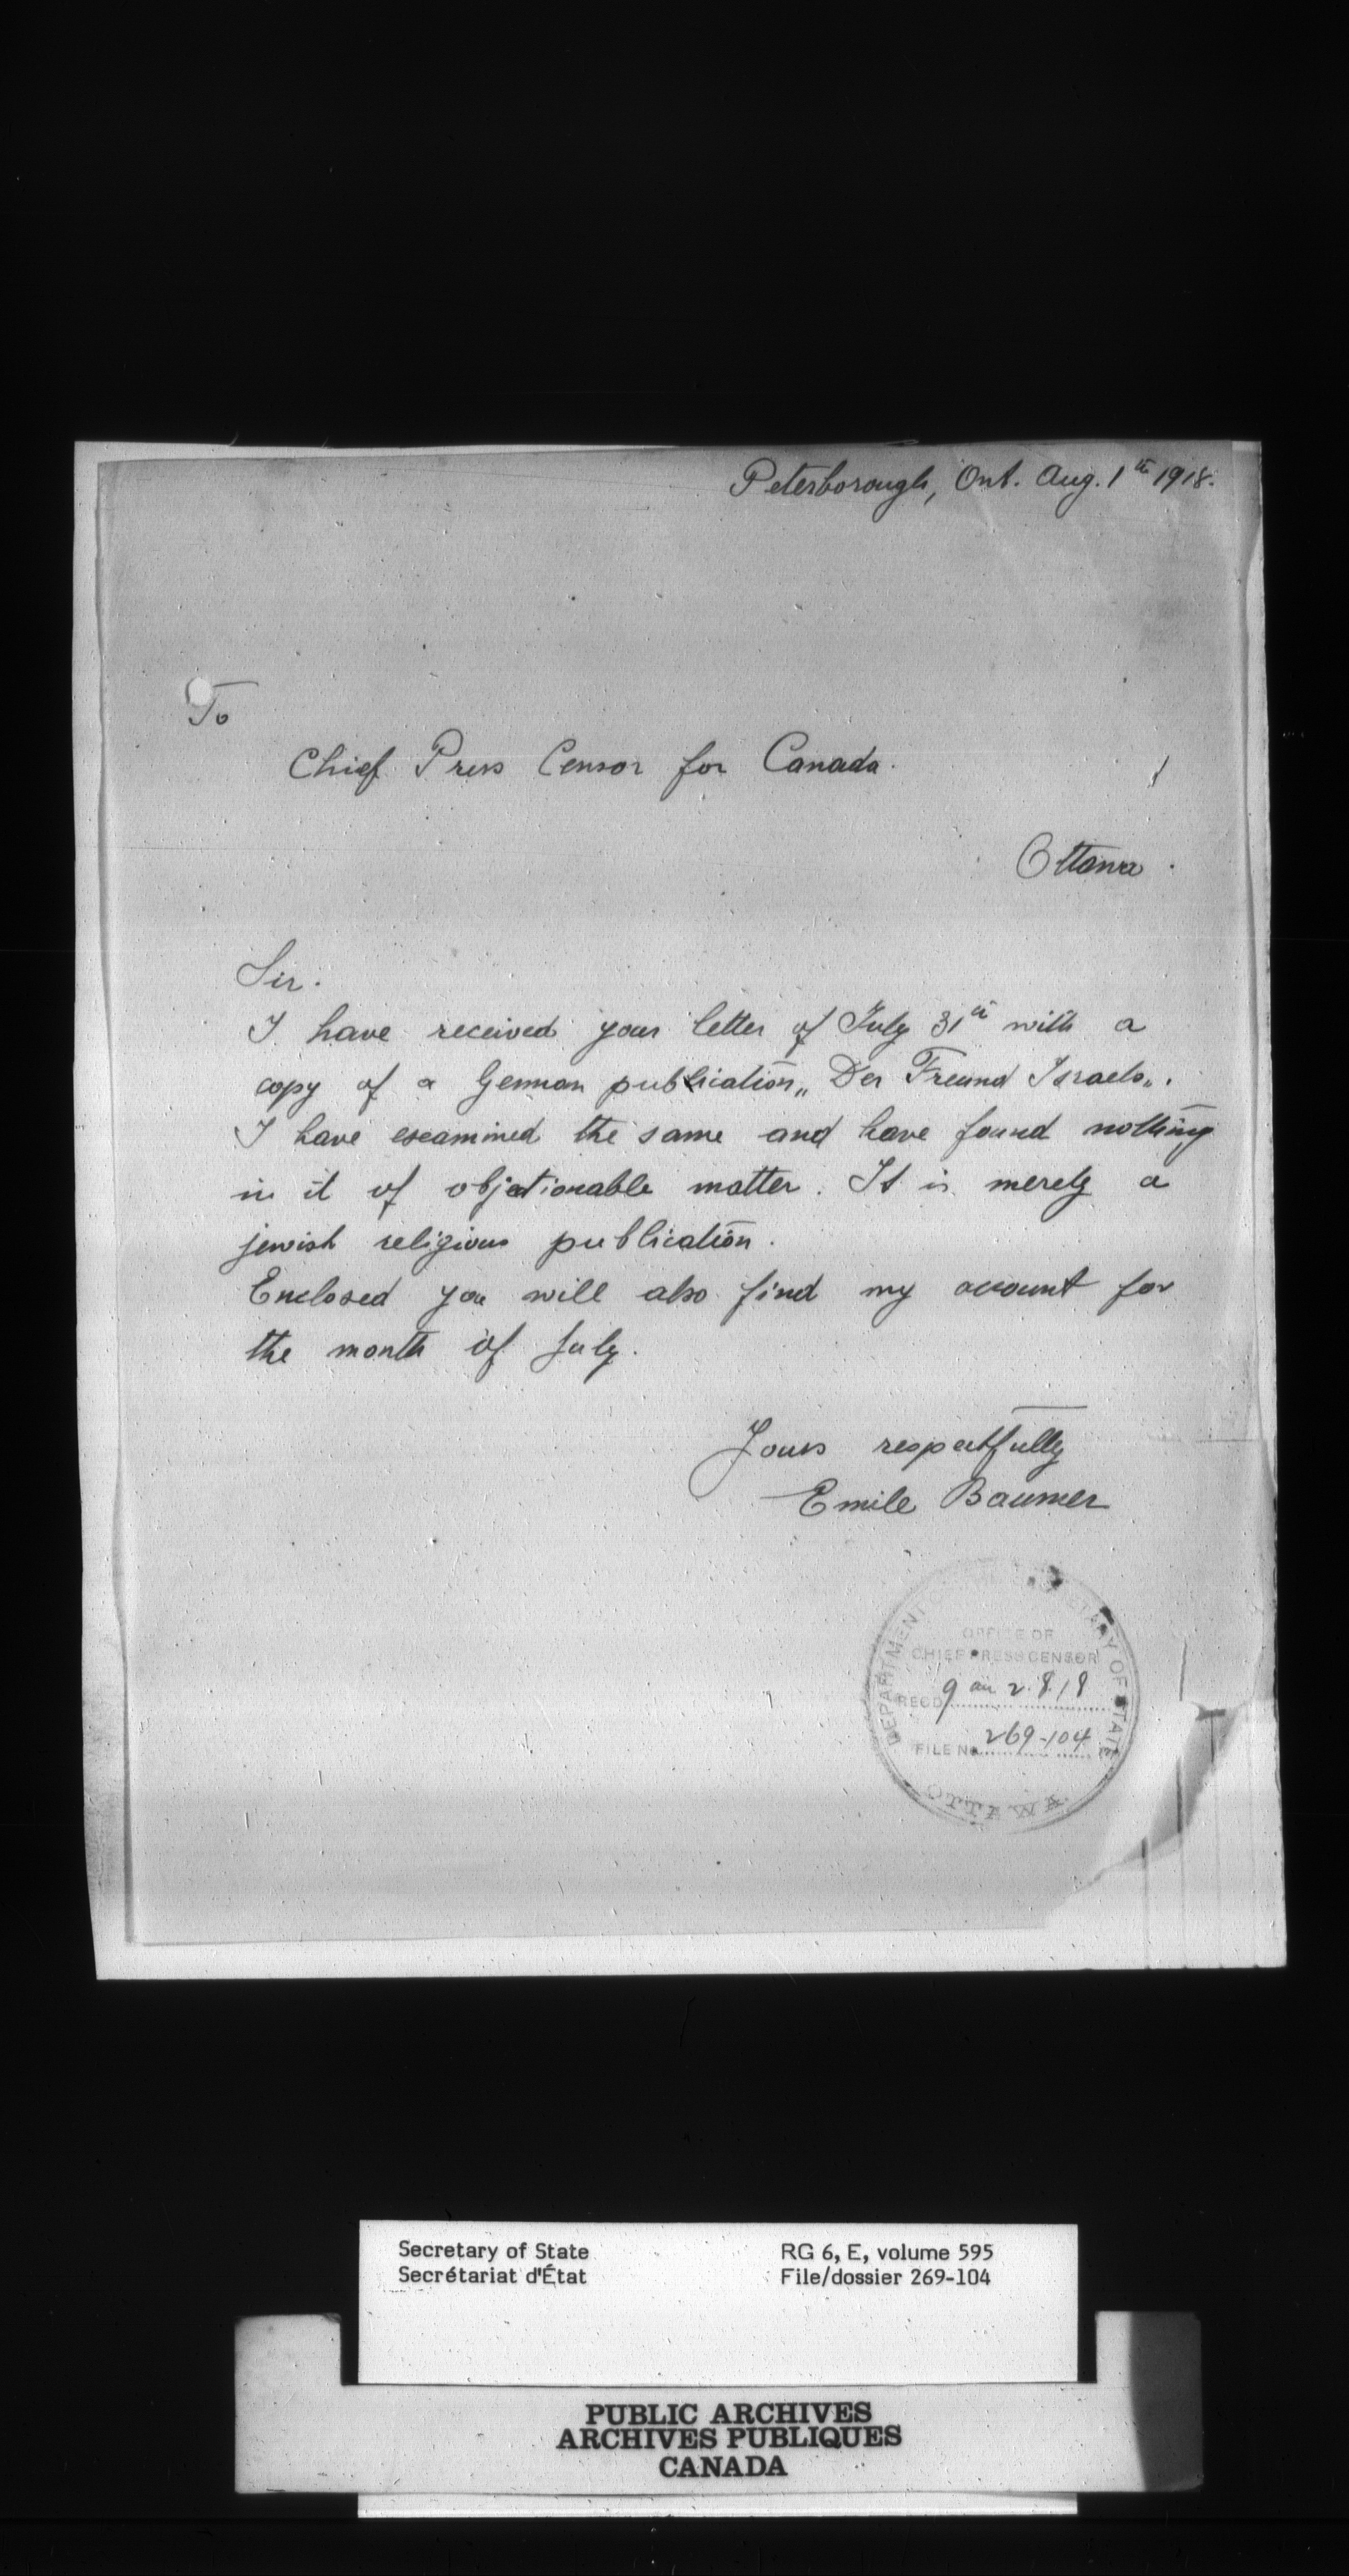 Peterborough, Ont. Aug. 1th 1918.
To
Chief Press Censor for Canada.
Ottawa.
Sir.
I have received your letter of July 31th with a
copy of a German publication „Der Freund Israels„.
I have examined the same and have found nothing
in it of objetionable matter. It is merely a
jewish religious publication.
Enclosed you will also find my account for
the month of July.
Yours respectfully
Emile Baumer
DEPARTMENT OF SECRETARY OF STATE
OFFICE OF
CHIEF PRESS CENSOR
RECD 9 am 2.8.18
FILE No. 269-104
OTTAWA
Secretary of State
Secrétariat d'État
RG 6, E, volume 595
File/dossier 269-104
PUBLIC ARCHIVES
ARCHIVES PUBLIQUES
CANADA